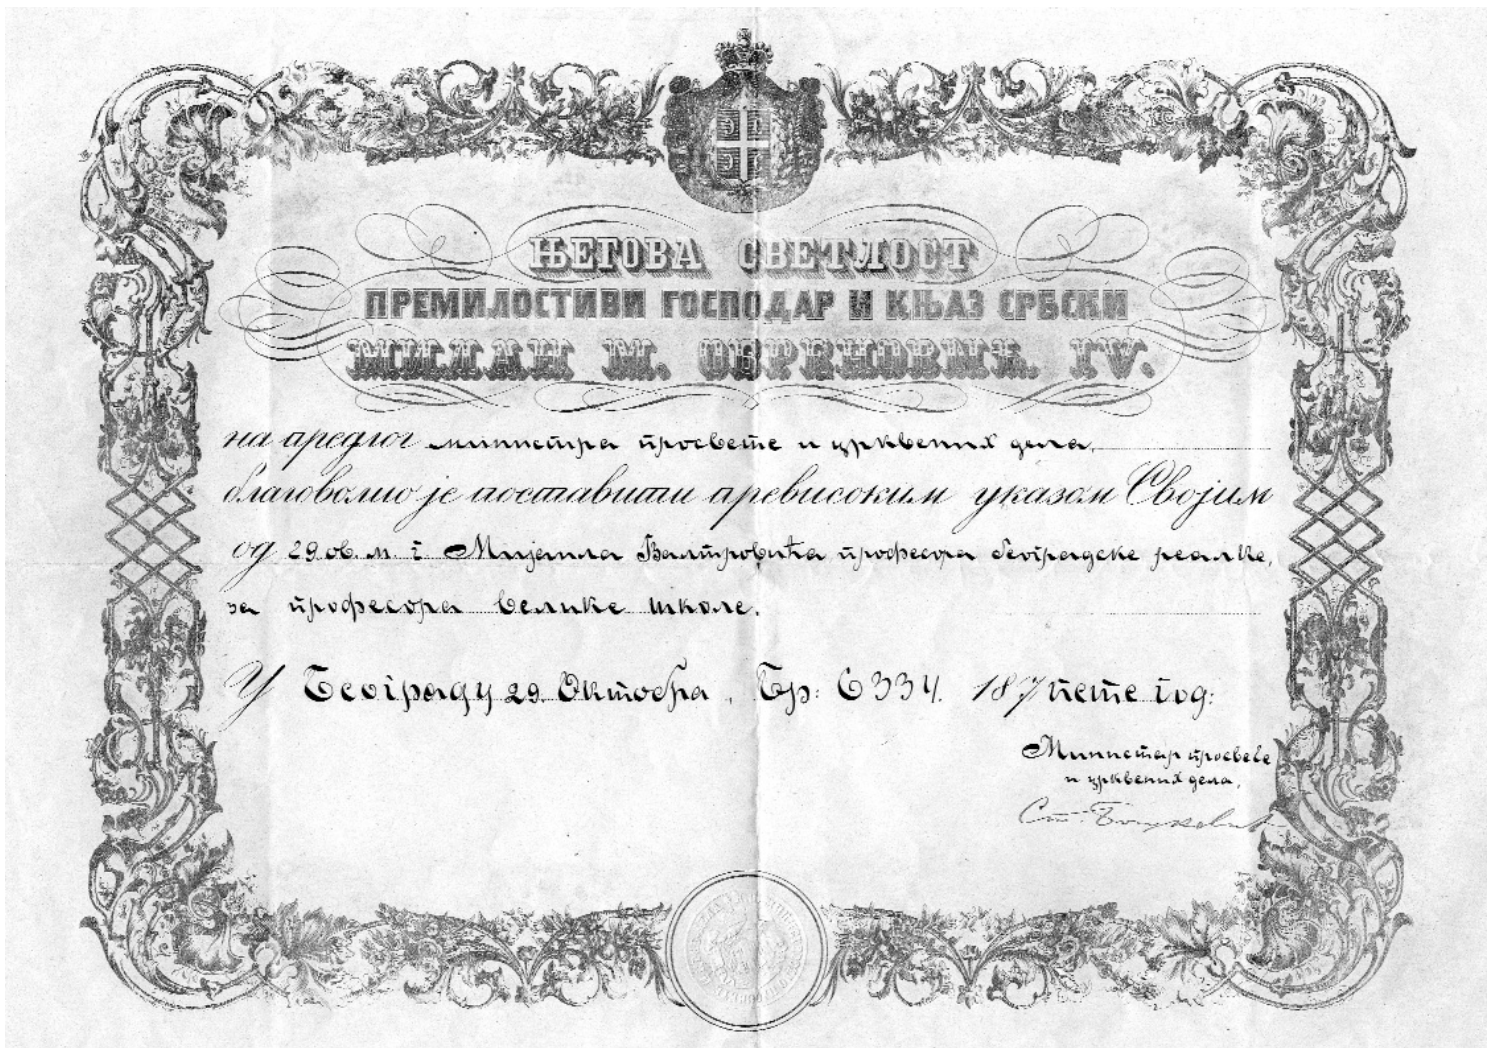 ЊЕГОВА СВЕТЛОСТ
ПРЕМИЛОСТИВИ ГОСПОДАР И КЊАЗ СРБСКИ
МИЛАН М. ОБРЕНОВИЋ. IV.
на предлог министра просвете и црквених дела,
благоволио је поставити превисоким указом Својим
од 29 ов. м. г. Мијаила Валтровића професора београдске реалке,
за професора велике школе.
У Београду 29. Октобра, Бр: 6334. 187 пете год:
Министар просвете
и црквених дела,
Ст. Бошковић